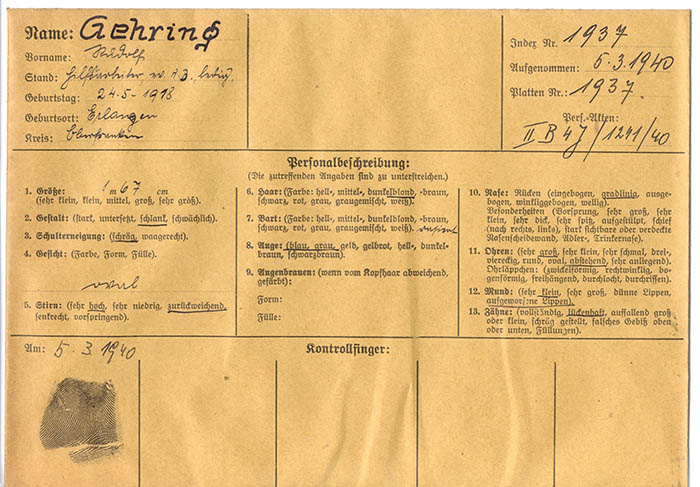 Name: Gehring
Vorname: Rudolf
Stand: Hilfsarbeiter, ledig.
Geburtstag: 24.5-1918
Geburtsort: Erlangen
Kreis: Oberfranken
Index Nr. 1937
Aufgenommen: 5.3.1940
Platten Nr.: 1937.
Pers.-Akten:
II B 4J / 1241/40
Personalbeschreibung:
(Die zutreffenden Angaben sind zu unterstreichen.)
1. Größe: 1 m 67 cm
(sehr klein, klein, mittel, groß, sehr groß).
2. Gestalt: (stark, untersetzt, schlank, schwächlich).
3. Schulterneigung: (schräg, waagerecht).
4. Gesicht: (Farbe, Form, Fülle).
oval
5. Stirn: (sehr hoch, sehr niedrig, zurückweichend,
senkrecht, vorspringend).
6. Haar: (Farbe: hell-, mittel-, dunkelblond, -braun,
schwarz, rot, grau, graugemischt, weiß).
7. Bart: (Farbe: hell-, mittel-, dunkelblond, -braun,
schwarz, rot, grau, graugemischt, weiß). rasiert
8. Auge: (blau, grau, gelb, gelbrot, hell-, dunkel-
braun, schwarzbraun).
9. Augenbrauen: (wenn vom Kopfhaar abweichend,
gefärbt):
Form:
Fülle:
10. Nase: Rücken (eingebogen, gradlinig, ausge-
bogen, winkliggebogen, wellig).
Besonderheiten (Vorsprung, sehr groß, sehr
klein, sehr dick, sehr spitz, aufgestülpt, schief
(nach rechts, links), stark sichtbare oder verdeckte
Nasenscheidewand, Adler-, Trinkernase).
11. Ohren: (sehr groß, sehr klein, sehr schmal, drei-,
viereckig, rund, oval, abstehend, sehr anliegend).
Ohrläppchen: (zwickelförmig, rechtwinklig, bo-
genförmig, freihängend, durchlocht, durchrissen).
12. Mund: (sehr klein, sehr groß, dünne Lippen,
aufgeworfene Lippen).
13. Zähne: (vollständig, lückenhaft, auffallend groß
oder klein, schräg gestellt, falsches Gebiß oben
oder unten, Füllungen).
Am: 5.3.1940
Kontrollfinger: